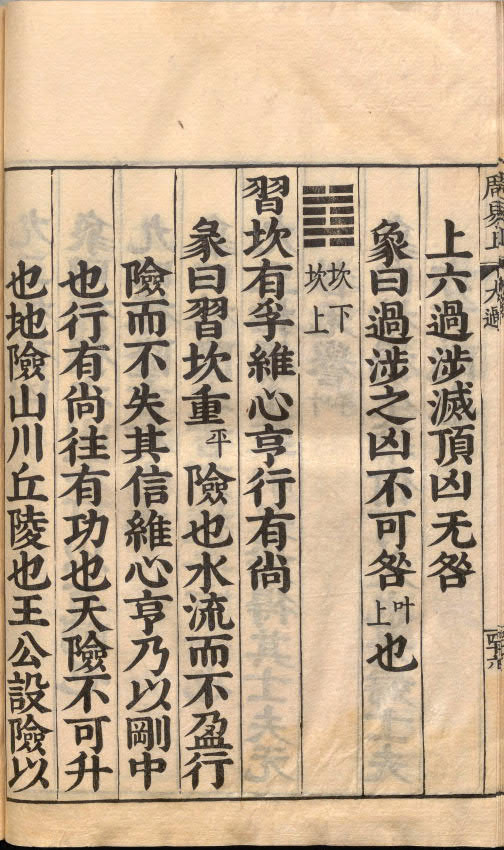 上六過涉滅頂凶无咎
象曰過涉之凶不可咎叶上也
䷜坎下坎上
習坎有孚維心亨行有尚
彖曰習坎重平險也水流而不盈行
險而不失其信維心亨乃以剛中
也行有尚往有功也天險不可升
也地險山川丘陵也王公設險以